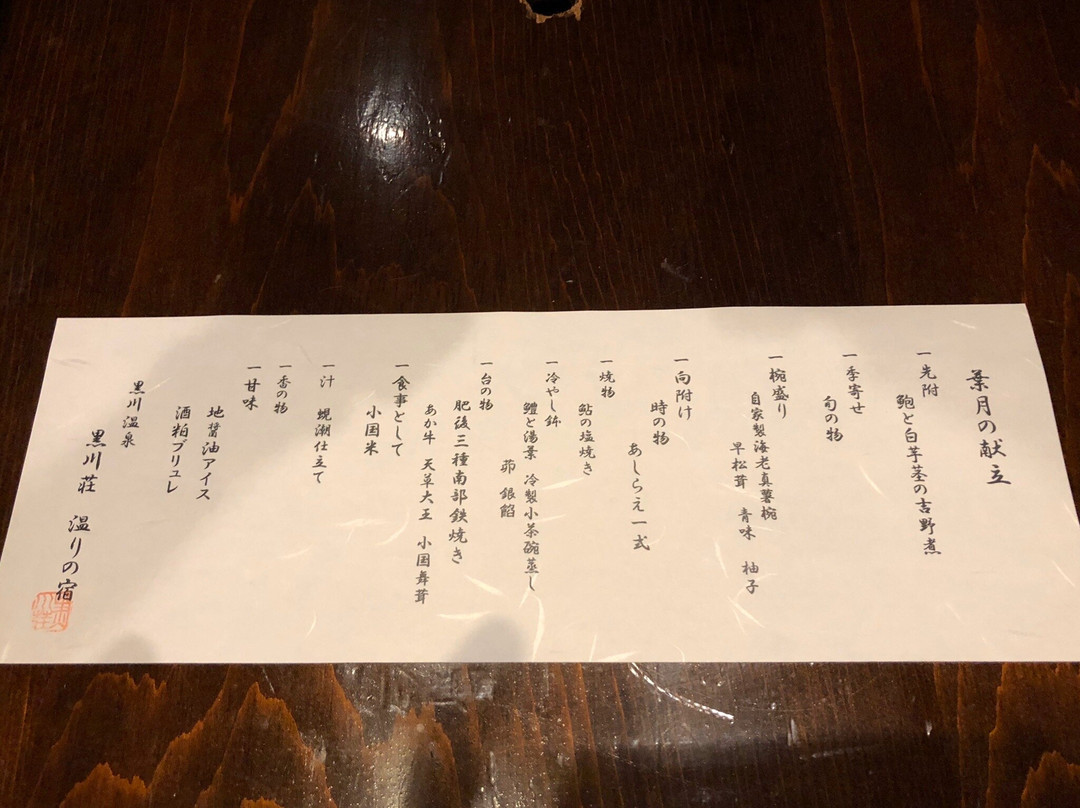 葉月の献立
一 先附
鮑と白芋茎の吉野煮
一 季寄せ
旬の物
一 椀盛り
自家製海老真薯椀
早松茸 青味 柚子
一 向附け
時の物
あしらえ一式
一 焼物
鮎の塩焼き
一 冷やし鉢
鱧と湯葉 冷製小茶碗蒸し
茆 銀餡
一 台の物
肥後三種南部鉄焼き
あか牛 天草大王 小国舞茸
一 食事として
小国米
一 汁 蜆潮仕立て
一 香の物
一 甘味
地醤油アイス
酒粕ブリュレ
黒川温泉
黒川荘 温りの宿